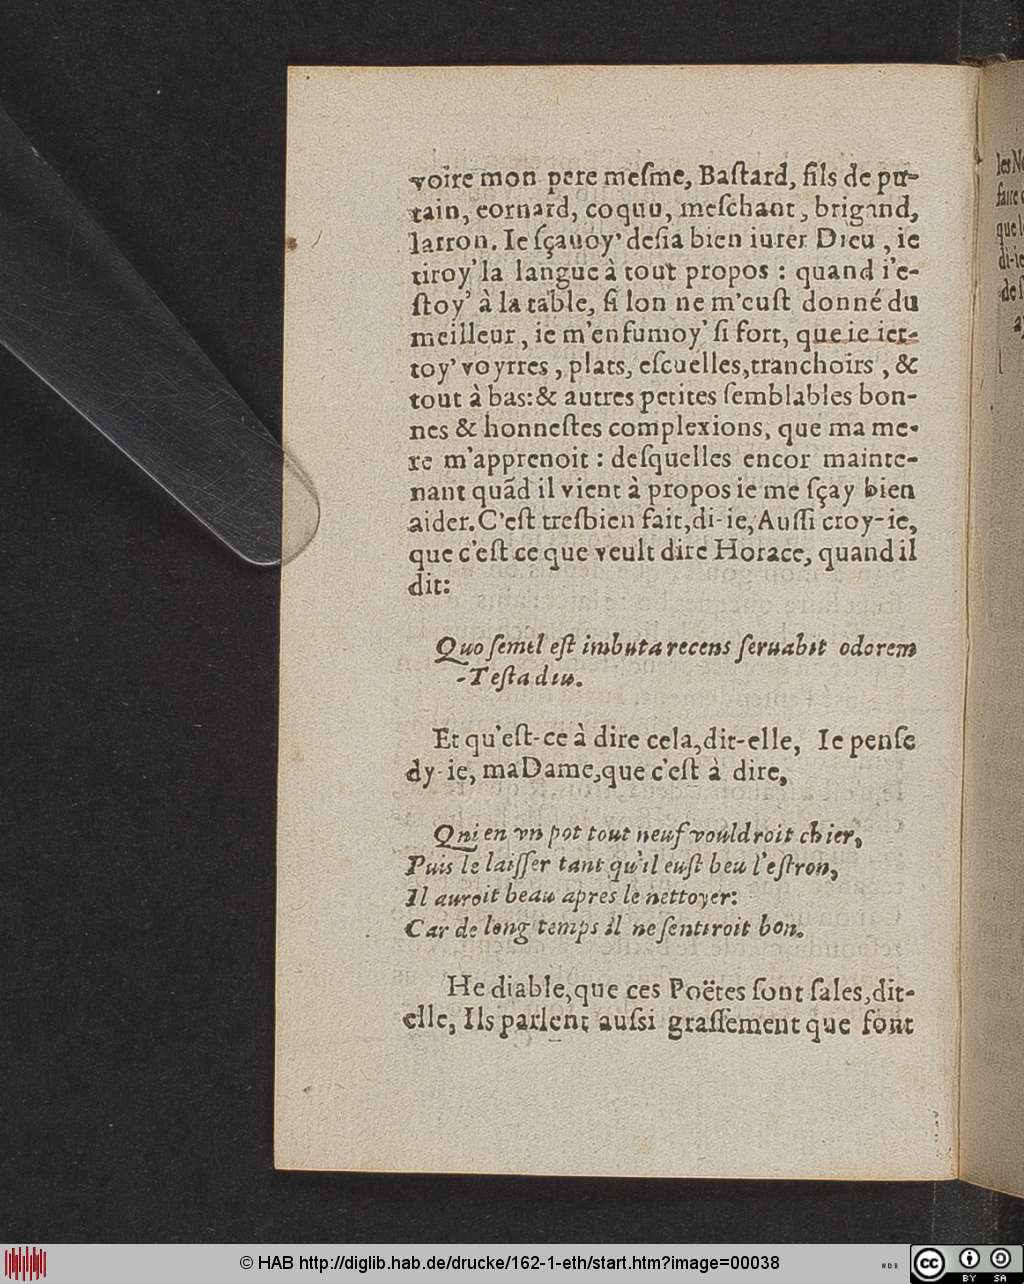 voire mon pere meſme, Baſtard, fils de pu-
tain, cornard, coquu, meſchant, brigand,
larron. Ie ſçauoy' deſia bien iurer Dieu, ie
tiroy' la langue à tout propos : quand i'e-
ſtoy' à la table, ſi lon ne m'euſt donné du
meilleur, ie m'enfumoy' ſi fort, que ie iet-
toy' voyrres, plats, eſcuelles, tranchoirs, &
tout à bas: & autres petites ſemblables bon-
nes & honneſtes complexions, que ma me-
re m'apprenoit : deſquelles encor mainte-
nant quãd il vient à propos ie me ſçay bien
aider. C'eſt treſbien fait, di-ie, Auſſi croy-ie,
que c'eſt ce que veult dire Horace, quand il
dit:
Quo ſemel eſt imbuta recens ſeruabit odorem
-Teſta diu.
Et qu'eſt-ce à dire cela, dit-elle, Ie penſe
dy-ie, maDame, que c'eſt à dire,
Qni en vn pot tout neuf vouldroit chier,
Puis le laiſſer tant qu'il euſt beu l'eſtron,
Il auroit beau apres le nettoyer:
Car de long temps il ne ſentiroit bon.
He diable, que ces Poëtes ſont ſales, dit-
elle, Ils parlent auſsi graſſement que font
les
faire
que
di-ie
de
© HAB http://diglib.hab.de/drucke/162-1-eth/start.htm?image=00038
WDB
cc BY SA